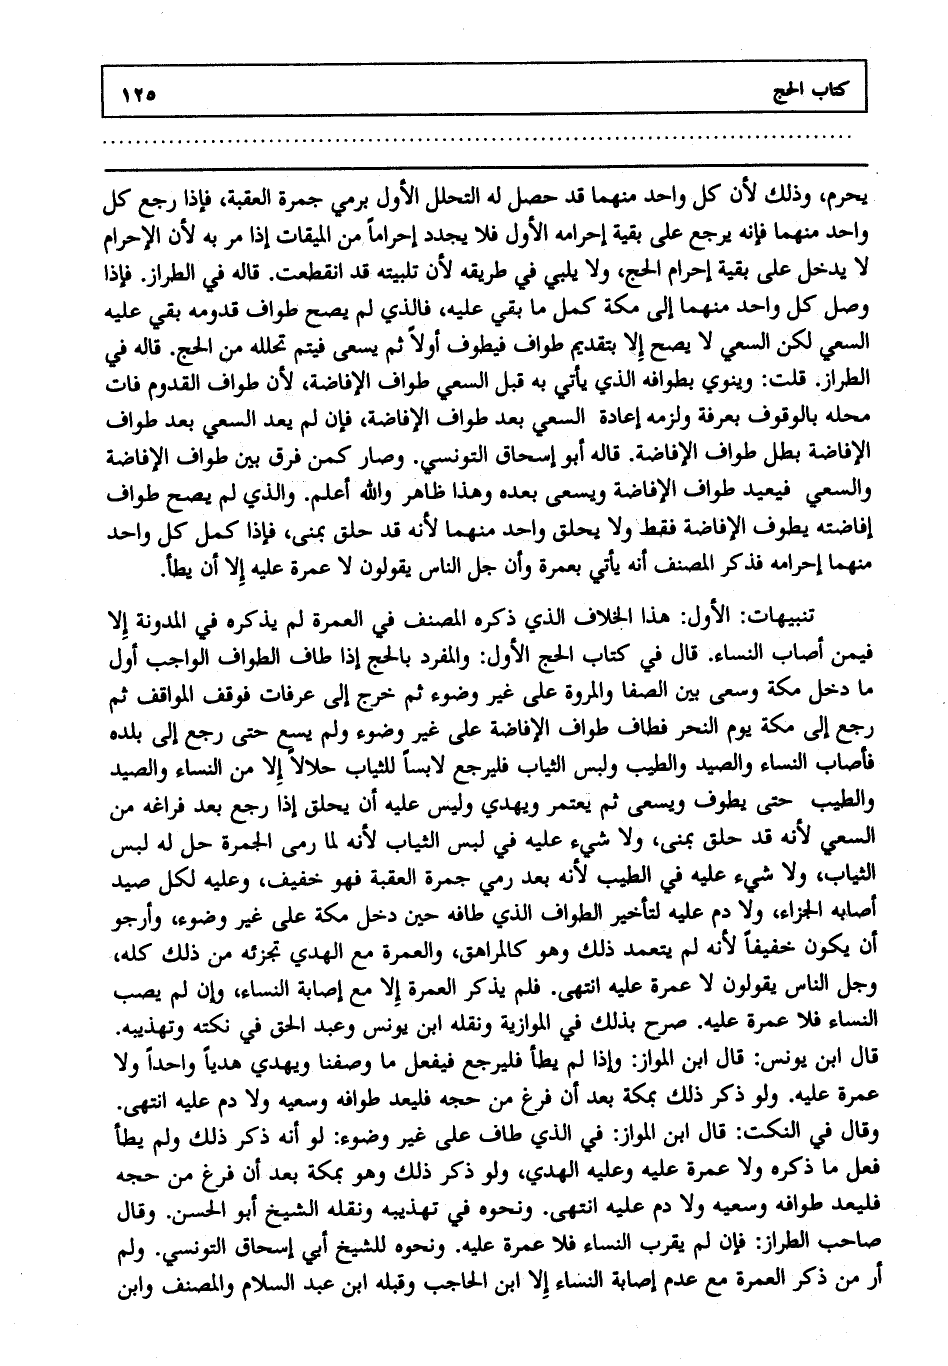 كتاب الحج
١٢٥
يحرم، وذلك لأن كل واحد منهما قد حصل له التحلل الأول برمي جمرة العقبة، فإذا رجع كل
واحد منهما فإنه يرجع على بقية إحرامه الأول فلا يجدد إحراماً من الميقات إذا مر به لأن الإحرام
لا يدخل على بقية إحرام الحج، ولا يلبي في طريقه لأن تلبيته قد انقطعت. قاله في الطراز. فإذا
وصل كل واحد منهما إلى مكة كمل ما بقي عليه، فالذي لم يصح طواف قدومه بقي عليه
السعي لكن السعي لا يصح إلا بتقديم طواف فيطوف أولاً ثم يسعى فيتم تحلله من الحج. قاله في
الطراز. قلت: وينوي بطوافه الذي يأتي به قبل السعي طواف الإفاضة، لأن طواف القدوم فات
محله بالوقوف بعرفة ولزمه إعادة السعي بعد طواف الإفاضة، فإن لم يعد السعي بعد طواف
الإفاضة بطل طواف الإفاضة. قاله أبو إسحاق التونسي. وصار كمن فرق بين طواف الإفاضة
والسعي فيعيد طواف الإفاضة ويسعى بعده وهذا ظاهر والله أعلم. والذي لم يصح طواف
إفاضته يطوف الإفاضة فقط ولا يحلق واحد منهما لأنه قد حلق بمنى، فإذا كمل كل واحد
منهما إحرامه فذكر المصنف أنه يأتي بعمرة وأن جل الناس يقولون لا عمرة عليه إلا أن يطأ.
تنبيهات: الأول: هذا الخلاف الذي ذكره المصنف في العمرة لم يذكره في المدونة إلا
فيمن أصاب النساء. قال في كتاب الحج الأول: والمفرد بالحج إذا طاف الطواف الواجب أول
ما دخل مكة وسعى بين الصفا والمروة على غير وضوء ثم خرج إلى عرفات فوقف المواقف ثم
رجع إلى مكة يوم النحر فطاف طواف الإفاضة على غير وضوء ولم يسع حتى رجع إلى بلده
فأصاب النساء والصيد والطيب ولبس الثياب فليرجع لابساً للثياب حلالاً إلا من النساء والصيد
والطيب حتى يطوف ويسعى ثم يعتمر ويهدي وليس عليه أن يحلق إذا رجع بعد فراغه من
السعي لأنه قد حلق بمنى، ولا شيء عليه في لبس الثياب لأنه لما رمى الجمرة حل له لبس
الثياب، ولا شيء عليه في الطيب لأنه بعد رمي جمرة العقبة فهو خفيف، وعليه لكل صيد
أصابه الجزاء، ولا دم عليه لتأخير الطواف الذي طافه حين دخل مكة على غير وضوء، وأرجو
أن يكون خفيفاً لأنه لم يتعمد ذلك وهو كالمراهق، والعمرة مع الهدي تجزئه من ذلك كله،
وجل الناس يقولون لا عمرة عليه انتهى. فلم يذكر العمرة إلا مع إصابة النساء، وإن لم يصب
النساء فلا عمرة عليه. صرح بذلك في الموازية ونقله ابن يونس وعبد الحق في نكته وتهذيبه.
قال ابن يونس: قال ابن المواز: وإذا لم يطأ فليرجع فيفعل ما وصفنا ويهدي هدياً واحداً ولا
عمرة عليه. ولو ذكر ذلك بمكة بعد أن فرغ من حجه فليعد طوافه وسعيه ولا دم عليه انتهى.
وقال في النكت: قال ابن المواز: في الذي طاف على غير وضوء: لو أنه ذكر ذلك ولم يطأ
فعل ما ذكره ولا عمرة عليه وعليه الهدي، ولو ذكر ذلك وهو بمكة بعد أن فرغ من حجه
فليعد طوافه وسعيه ولا دم عليه انتهى. ونحوه في تهذيبه ونقله الشيخ أبو الحسن. وقال
صاحب الطراز: فإن لم يقرب النساء فلا عمرة عليه. ونحوه للشيخ أبي إسحاق التونسي. ولم
أر من ذكر العمرة مع عدم إصابة النساء إلا ابن الحاجب وقبله ابن عبد السلام والمصنف وابن